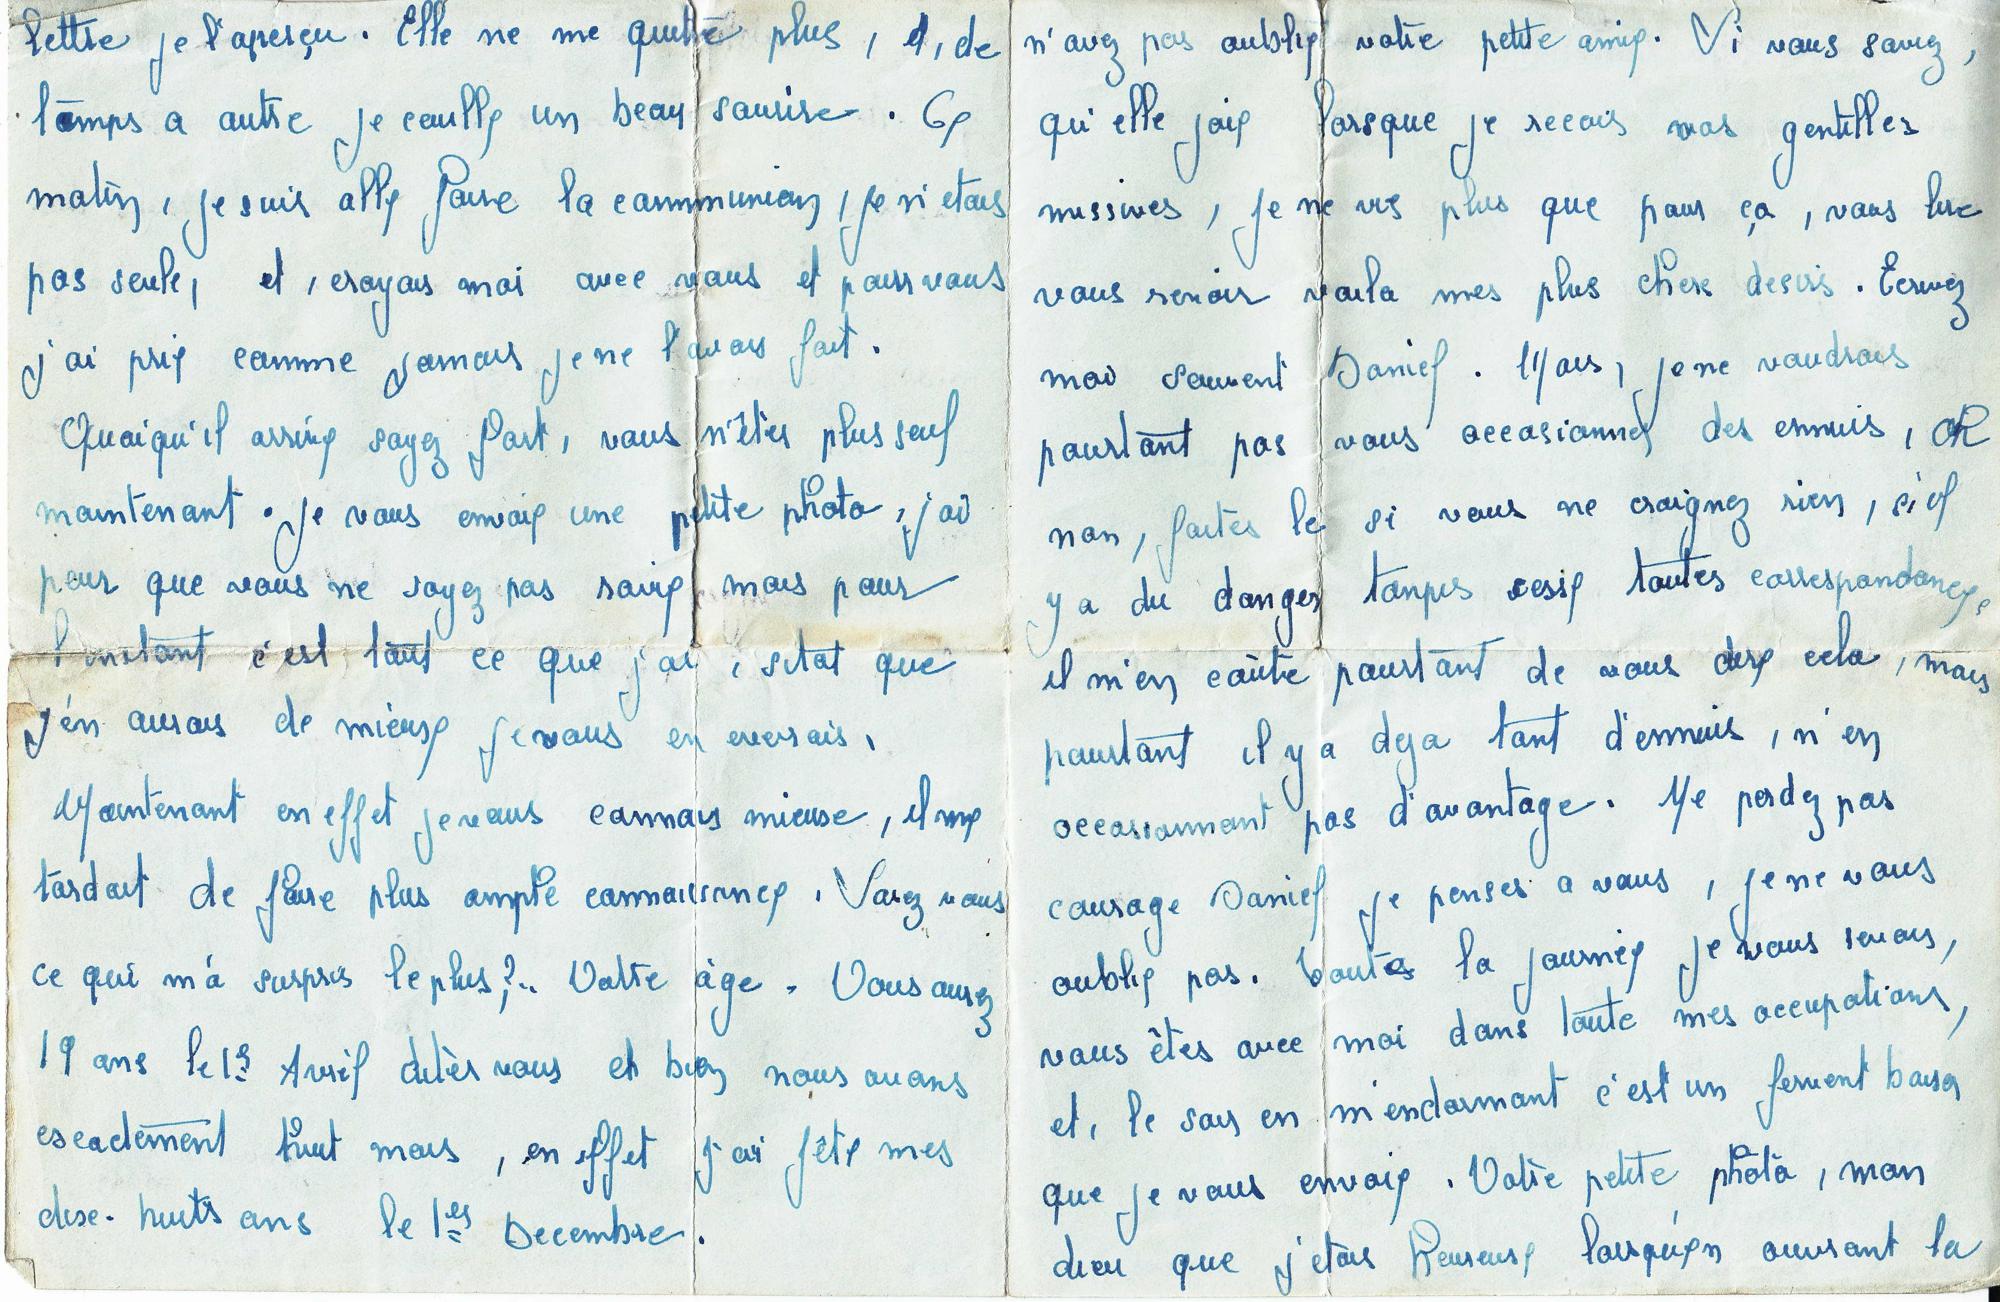 lettre je l'aperçu. Elle ne me quitte plus, et, de
temps a autre je ceuille un beau sourire. Ce
matin, je suis allé faire la communion, je n'étais
pas seule, et, croyais moi avec vous et pour vous
j'ai prié comme jamais je ne l'avais fait.
Quoiqu'il arrive soyez fort, vous n'êtes plus seul
maintenant. Je vous envoie une petite photo, j'ai
peur que vous ne soyez pas ravie mais pour
l'instant c'est tout ce que j'ai, sitot que
j'en aurais de mieux je vous en everrais,
Maintenant en effet je vous connais mieux, il me
tardait de faire plus ample connaissance. Savez vous
ce qui m'a surpris le plus?.. Votre âge. Vous aurez
19 ans le 1er Avril dites vous et bien nous avons
exactement huit mois, en effet j'ai fêté mes
dix-huits ans le 1er Decembre.
n'avez pas oublié votre petite amie. Si vous saviez,
qu'elle joie lorsque je recois vos gentilles
missives, je ne vis plus que pour ça, vous lire
vous revoir voila mes plus chere desirs. Ecrivez
moi souvent Daniel. Mais, je ne voudrais
pourtant pas vous occasionnés des ennuis, OR
non, faites le si vous ne craignez rien, s'il
y a du danger tanpis cessie toutes correspondance,
il m'en coûte pourtant de vous dire cela, mais
pourtant il y a deja tant d'ennuis, n'en
occasionnant pas d'avantage. Ne perdez pas
courage Daniel je penses a vous, je ne vous
oublie pas. Toutes la journée je vous revois,
vous êtes avec moi dans toute mes occupations,
et, le soir en m'endormant c'est un fervent baiser
que je vous envoie. Votre petite photo, mon
dieu que j'étais heureuse lorsqu'en ouvrant la